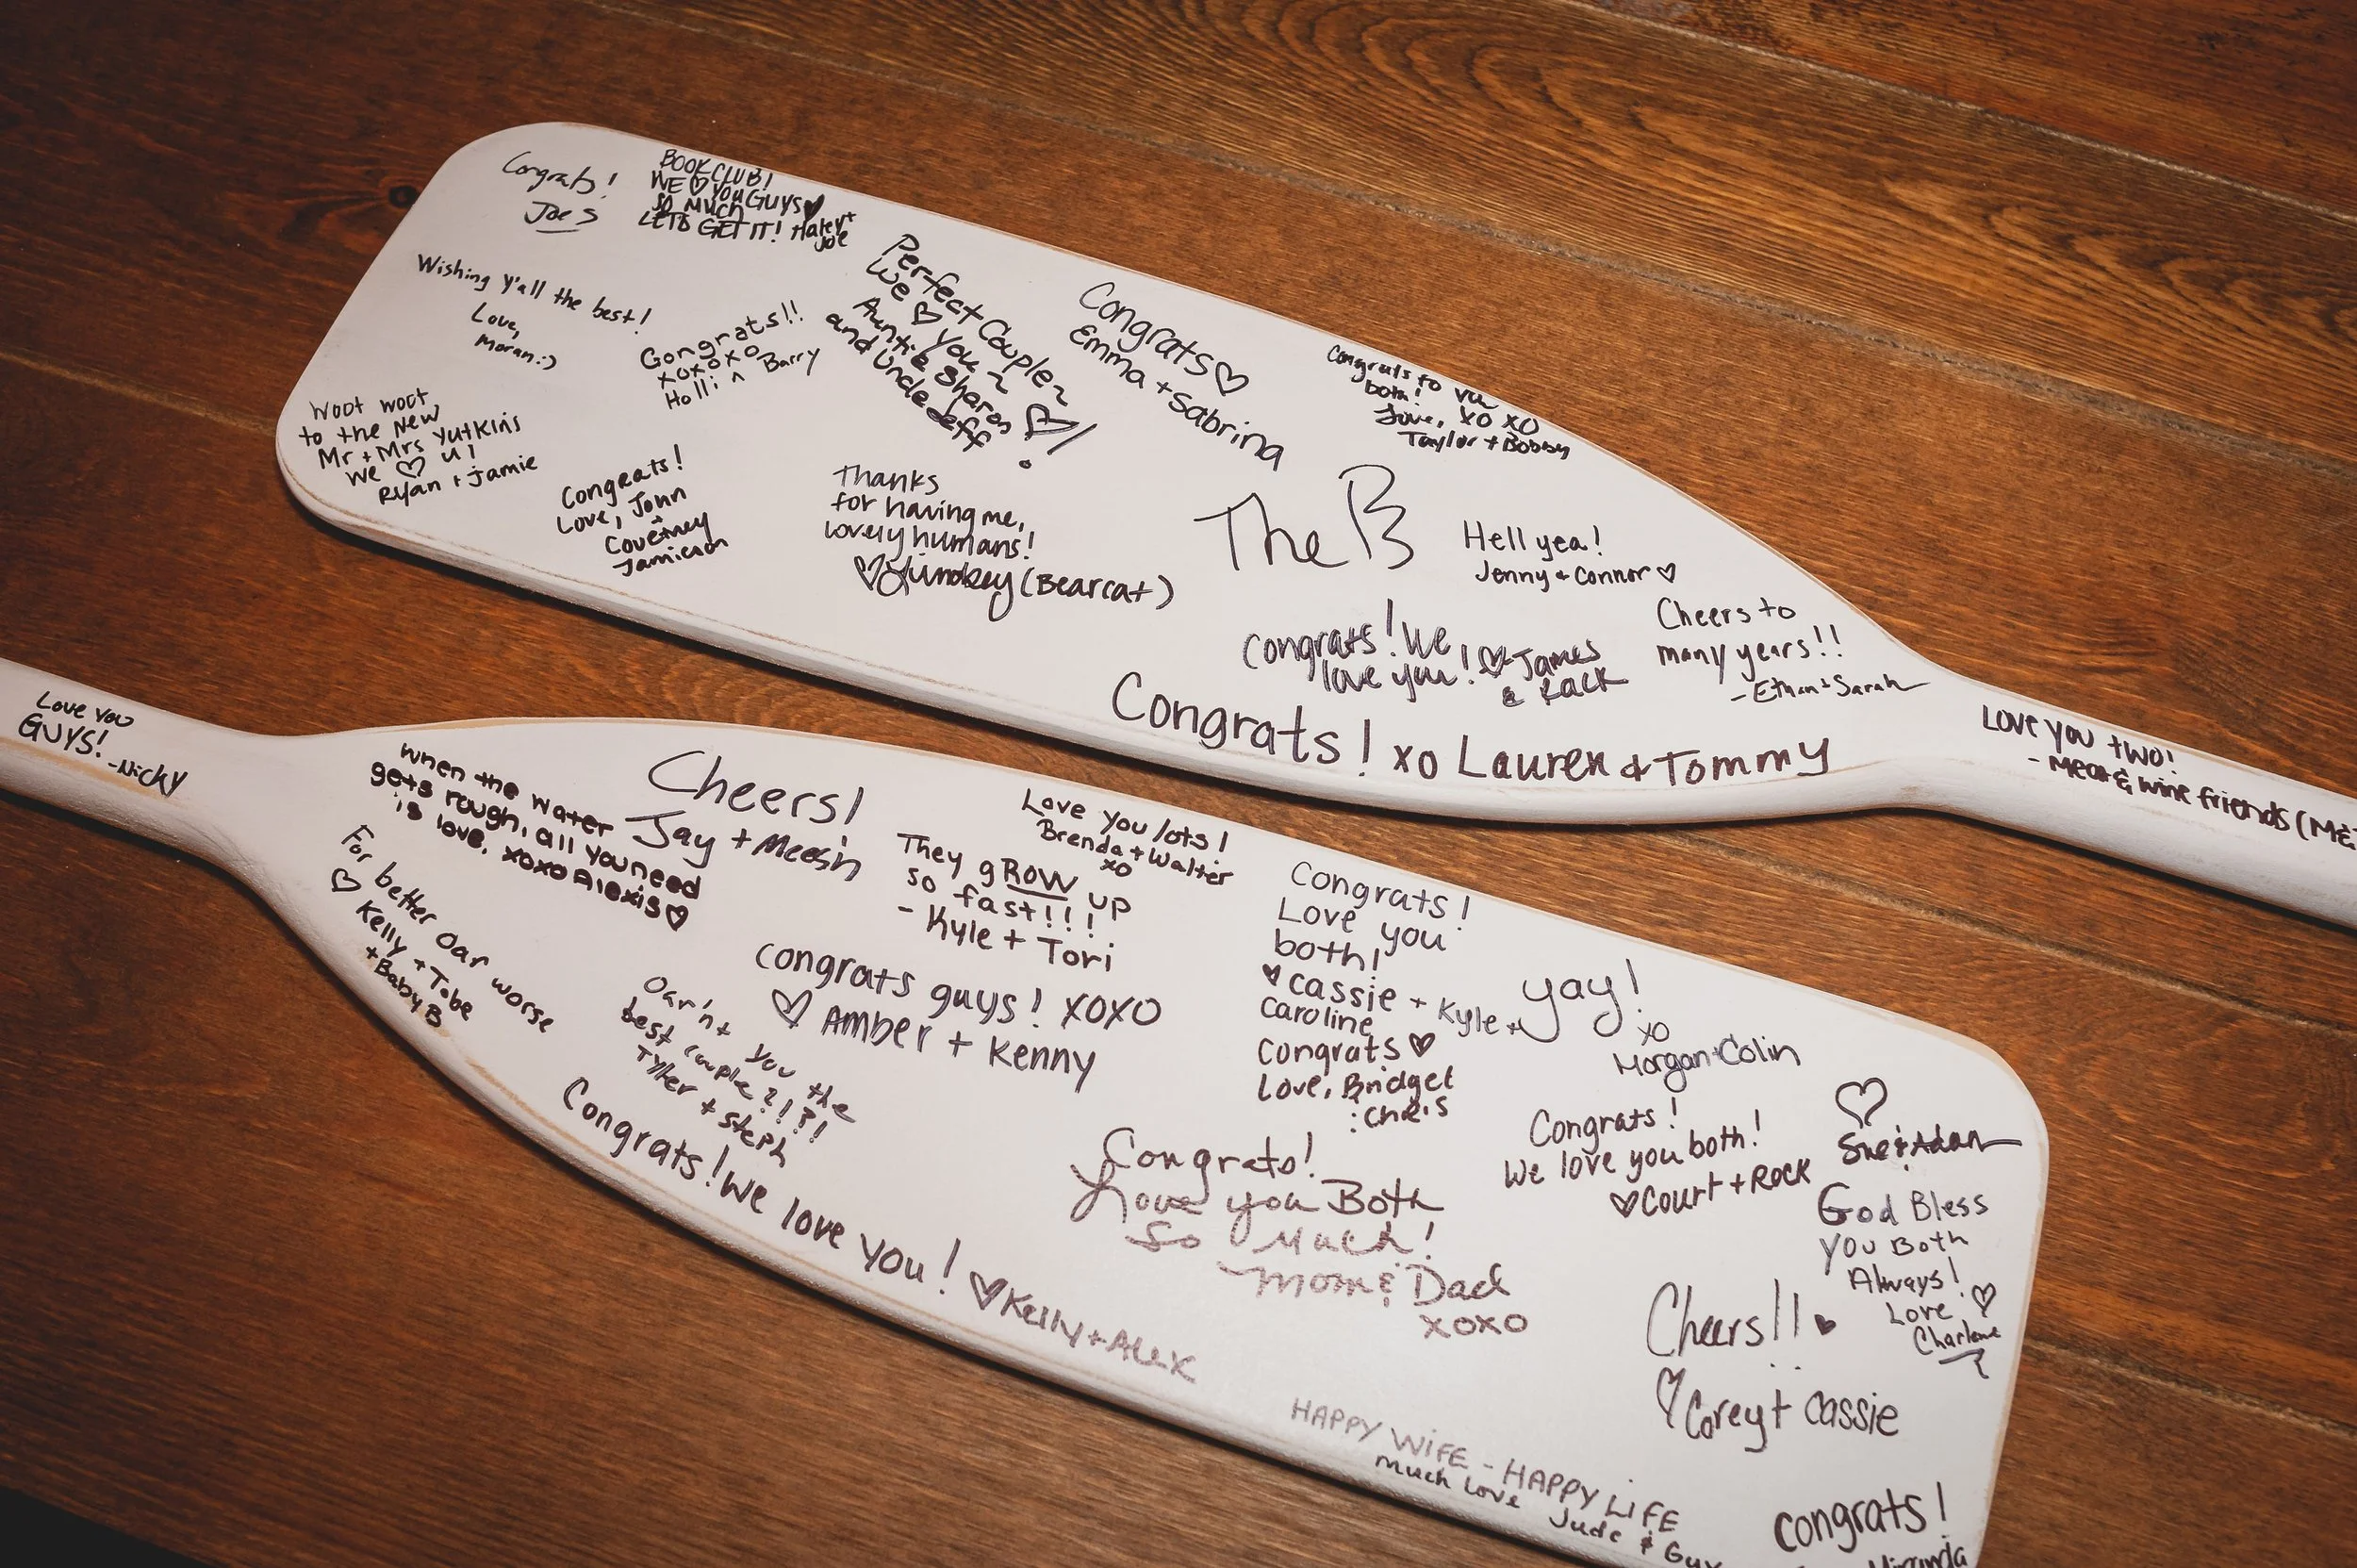 Congrats!
Joe S
BOOKCLUB!
WE ♡ YOU GUYS ♥
SO MUCH
LETS GET IT! Haley +
Joe
Wishing y'all the best!
Love,
Moran :)
Congrats!!
xoxoxo
Holli ^ Barry
Perfect Couple~
We ♡ you ~
Auntie Sharon
and Uncle Jeff ♡!
Congrats ♡
Emma + Sabrina
Congrats to
both!
Love, XO XO
Taylor + Bobby
Woot woot,
to the New
Mr + Mrs Yutkins
We ♡ U!
Ryan + Jamie
Congrats!
Love, John
+
Courtney
Jamieson
Thanks
for having me,
lovely humans!
♡ Lyndsey (Bearcat)
The B
Hell yea!
Jenny + Connor ♡
Congrats! We
love you! ♡ James
& Rack
Cheers to
many years!!
- Ethan + Sarah
Congrats! xo Lauren & Tommy
Love you two!
- Meat & wine friends (M&
Love you
GUYS!
- Nicky
When the water
gets rough, all you need
is love. xoxo Alexis ♡
Cheers!
Jay +
Love you lots!
Brenda + Walter
xo
They gROW up
so fast!!!
- Kyle + Tori
For better oar worse
♡ Kelly + Tobe
+ Baby B
Congrats guys! XOXO
♡ Amber + Kenny
Oar'nt you the
best couple?!?!
Tyler + Steph
Congrats!
Love you
both!
♥ Cassie + Kyle +
Caroline
Congrats ♡
Love, Bridget
: Chris
yay!
xo
Morgan + Colin
Congrats! We love you! ♡ Kelly + Alex
Congrats!
Love you Both
So Much!
Mom & Dad
XOXO
Congrats!
We love you both!
♡ Court + Rock
♡
Sue & Adam
God Bless
You Both
Always!
Love ♡
Charlene
Cheers!! ♥
♡ Corey + Cassie
HAPPY WIFE - HAPPY LIFE
Much Love
Jude & Guy
Congrats!
Miranda